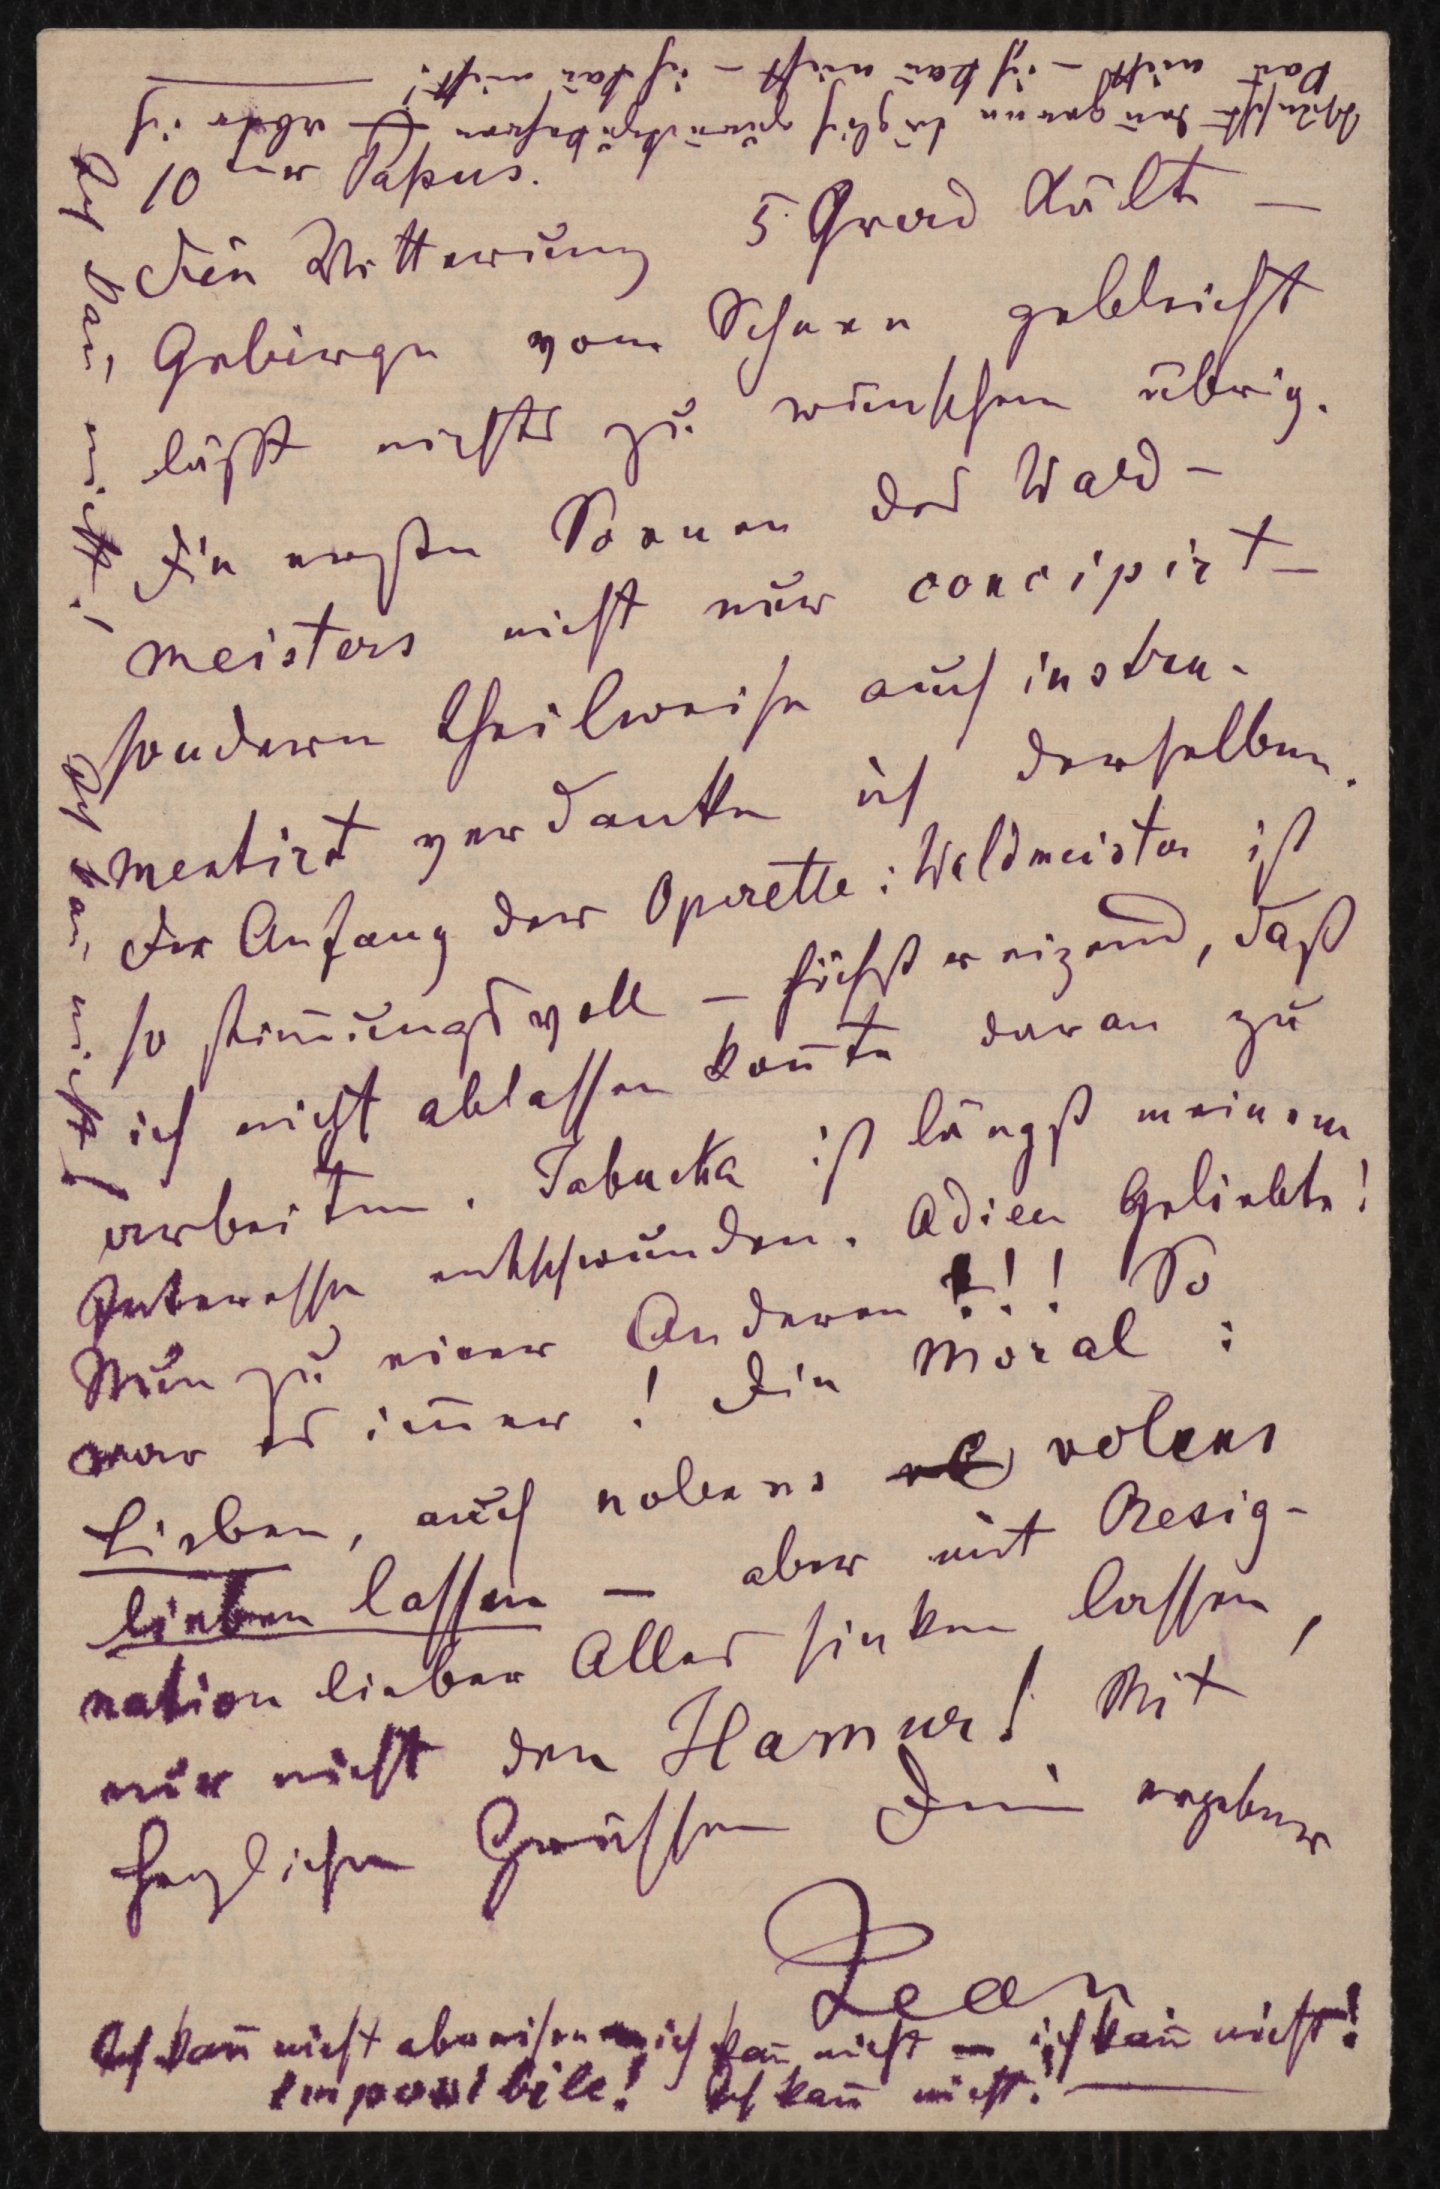 10ner Tapus.
Die Witterung 5 Grad Kälte –
Gebirge vom Schnee gebleicht
läßt nichts zu wünschen übrig.
Die ersten Scenen des Wald-
meisters nicht nur concipirt –
sondern theilweise auch instru-
mentirt verdanke ich derselben.
Der Anfang der Operette: Waldmeister ist
so stim̄ungsvoll – höchst reizend, daß
ich nicht ablassen kon̄te daran zu
arbeiten. Jabucka ist längst meinem
Interesse entschwunden. Adieu Geliebte!
Nun zu einer Anderen!!! So
war es im̄er! Die Moral:
Lieben, auch nolens volens
lieben lassen – aber mit Resig-
nation lieber Alles sinken lassen,
nur nicht den Hamur! Mit
herzlichen Grüssen Dein ergebener
Jean
Ich kan̄ nicht abreisen – ich kan̄ nicht – ich kan̄ nicht!
Impossibile! Ich kan̄ nicht! –
Ich kan̄ nicht!
Ich kan̄ nicht!
zurückzukehren – aber ich
kan̄ nicht – ich kan̄ nicht – ich kan̄ nicht!